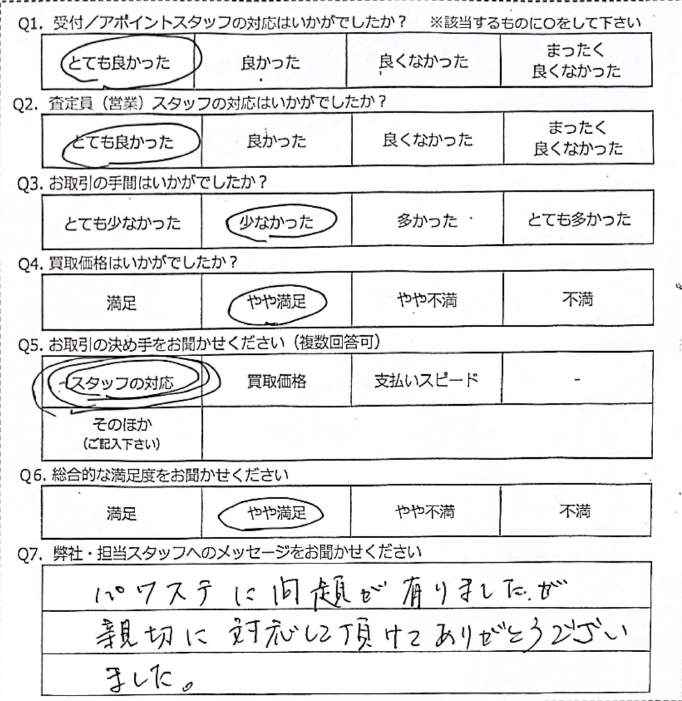 Q1. 受付／アポイントスタッフの対応はいかがでしたか？ ※該当するものに〇をして下さい
とても良かった 良かった 良くなかった まったく良くなかった
Q2. 査定員（営業）スタッフの対応はいかがでしたか？
とても良かった 良かった 良くなかった まったく良くなかった
Q3. お取引の手間はいかがでしたか？
とても少なかった 少なかった 多かった とても多かった
Q4. 買取価格はいかがでしたか？
満足 やや満足 やや不満 不満
Q5. お取引の決め手をお聞かせください（複数回答可）
スタッフの対応 買取価格 支払いスピード -
そのほか
（ご記入下さい）
Q6. 総合的な満足度をお聞かせください
満足 やや満足 やや不満 不満
Q7. 弊社・担当スタッフへのメッセージをお聞かせください
パワステに問題が有りましたが
親切に対応して頂けてありがとうござい
ました。